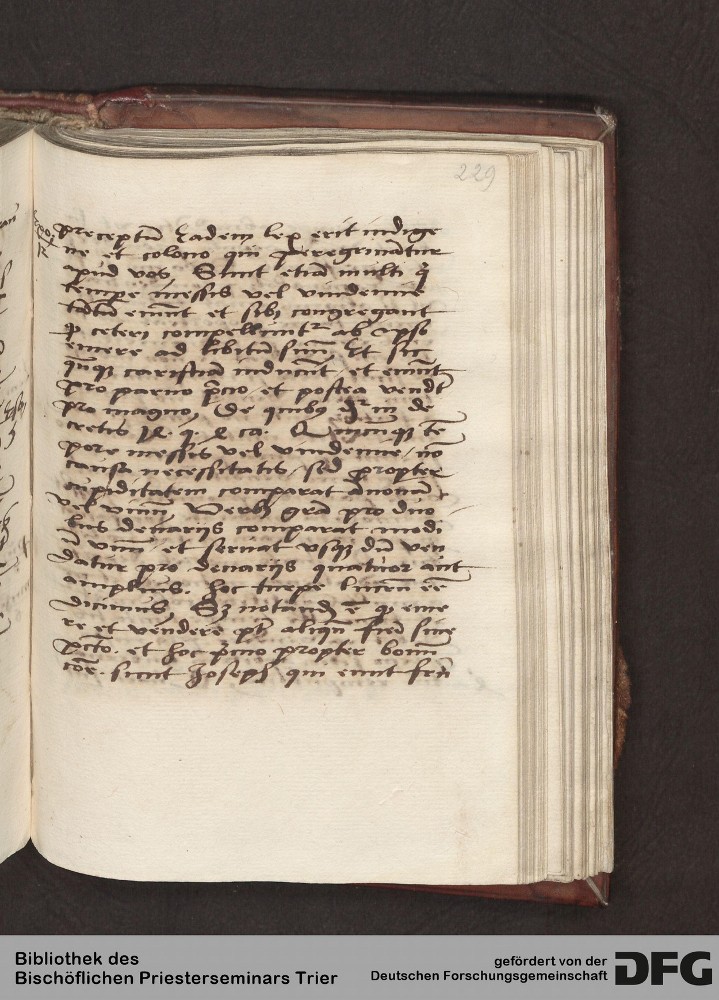 229
preceptū Eadem lex erit indige
ne et colono qui peregrinātur
apud vos, Sunt etiā multi q̄
tempe messis vel vindemie
tm̄ emunt et sibi congregant
ꝙ ceteri compellunt᷑ ab ipso
emere ad libitū suū, Et sic
caristiā inducūt, et emūt
pro paruo p̄cio, et postea vendūt
pro magno, De quibꝫ dr̄ in de
cretis q. ca. Quicūqꝫ tē
pore messis vel vindemie, nō
causa necessitatis, sed propter
cupiditatem comparat annonā
vel vinū, Verbi grā pro duo
bus denarijs comparat modi
ū vnū, et seruat vsqꝫ dū ven
datur pro denarijs quatuor aut
amplius. hoc turpe lucrū eē
dicimus, Sꝫ notandū ē ꝙ eme
re et vendere pt̄ aliqn̄ fieri sine
pctō. et hoc pr̄mo propter bonū
cōe. sicut Joseph qui emit frū
Bibliothek des
Bischöflichen Priesterseminars Trier
gefördert von der
Deutschen Forschungsgemeinschaft
DFG